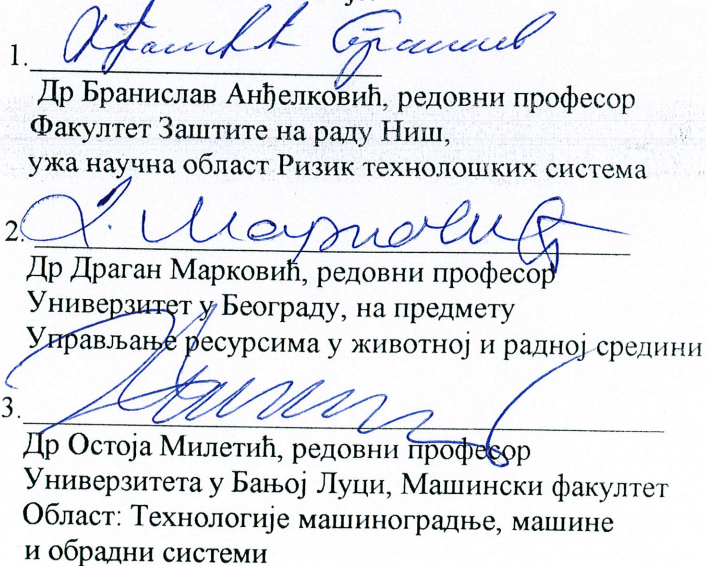 1.
Др Бранислав Анђелковић, редовни професор
Факултет Заштите на раду Ниш,
ужа научна област Ризик технолошких система
2.
Др Драган Марковић, редовни професор
Универзитет у Београду, на предмету
Управљање ресурсима у животној и радној средини
3.
Др Остоја Милетић, редовни професор
Универзитета у Бањој Луци, Машински факултет
Област: Технологије машиноградње, машине
и обрадни системи